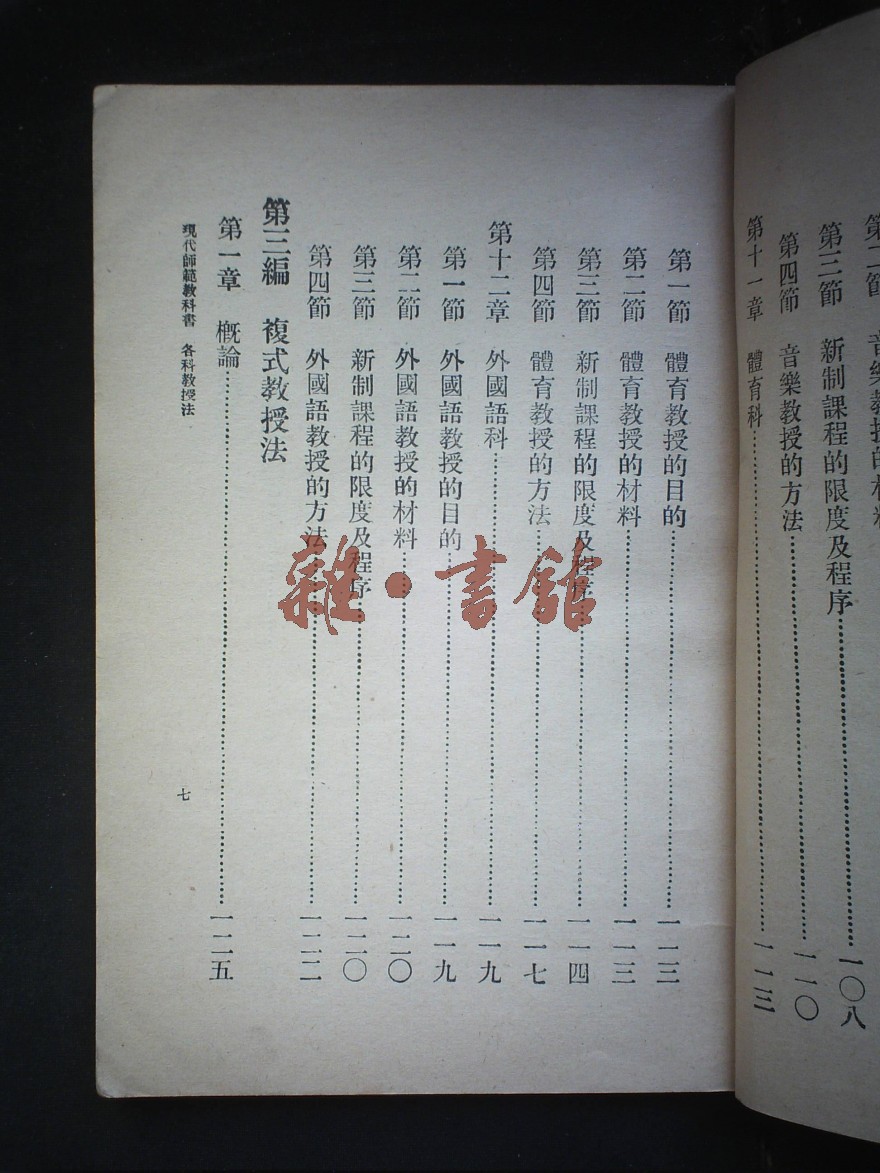 第三節　新制課程的限度及程序……一〇八
第四節　音樂教授的方法……一一〇
第十一章　體育科……一一三
第一節　體育教授的目的……一一三
第二節　體育教授的材料……一一三
第三節　新制課程的限度及程序……一一四
第四節　體育教授的方法……一一七
第十二章　外國語科……一一九
第一節　外國語教授的目的……一一九
第二節　外國語教授的材料……一二〇
第三節　新制課程的限度及程序……一二〇
第四節　外國語教授的方法……一二二
第三編　複式教授法
第一章　概論……一二五
現代師範教科書　各科教授法　七
雜·書館